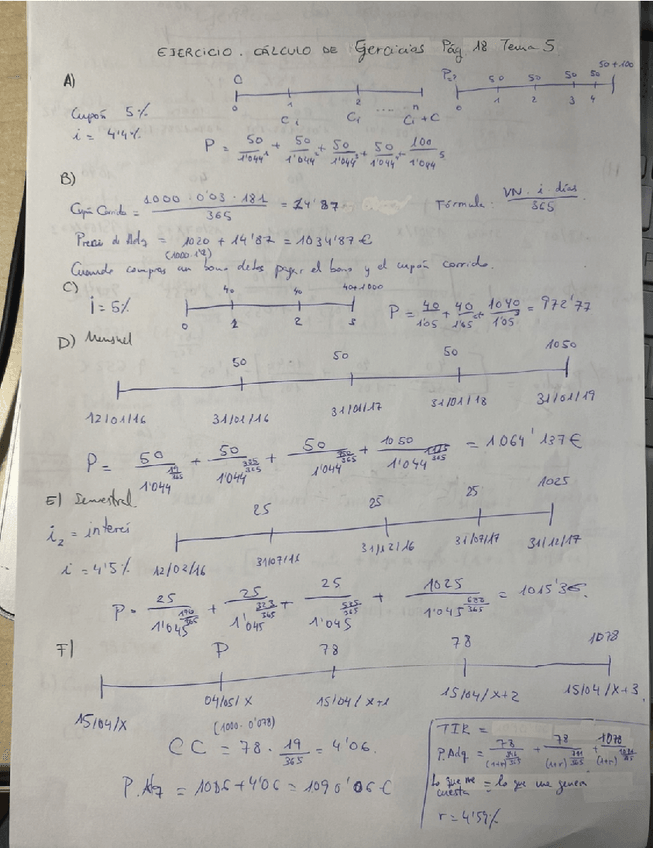 EJERCICIO. CÁLCULO DE Gerarcias Pág 18 Tema 5
A)
0 1 2 ..... n
C₁ C₁ C₁ + C
0 50 50 50 50 50+100
0 1 2 3 4
Cupón 5%
i = 4'4%
P = 50/1'044 + 50/1'044 + 50/1'044 + 50/1'044 + 100/1'044⁵
B)
Cupón Corrido = 1000 · 0'03 · 181 / 365 = 14'87
Fórmula: VN · i · días / 365
Precio de Adq = 1020 + 14'87 = 1034'87 €
Cuando compras un bono debes pagar el bono y el cupón corrido.
C)
i = 5%
40 40 40+1000
0 2
P = 40/1'05 + 40/1'05 + 1040/1'05 = 972'77
D) Mensual
50 50 50 1050
12/01/16 31/01/16 31/01/17 31/01/18 31/01/19
P = 50/1'044^(19/365) + 50/1'044 + 50/1'044 + 1050/1'044 = 1064'137 €
E) Semestral
25 25 25 1025
i₂ = interci
i = 4'5%
12/02/16 31/07/16 31/12/16 31/07/17 31/12/17
P = 25/1'045 + 25/1'045 + 25/1'045 + 1025/1'045 = 1015'36
F)
P 78 78 1078
15/04/X 04/05/X 15/04/X+1 15/04/X+2 15/04/X+3
(1000 · 0'078)
CC = 78 · 19/365 = 4'06
P. Adq = 1086 + 4'06 = 1090'06 €
TIR =
P. Adq = 78/(1+r) + 78/(1+r) + 1078/(1+r)
lo que me cuesta = lo que me genera
r = 4'59%